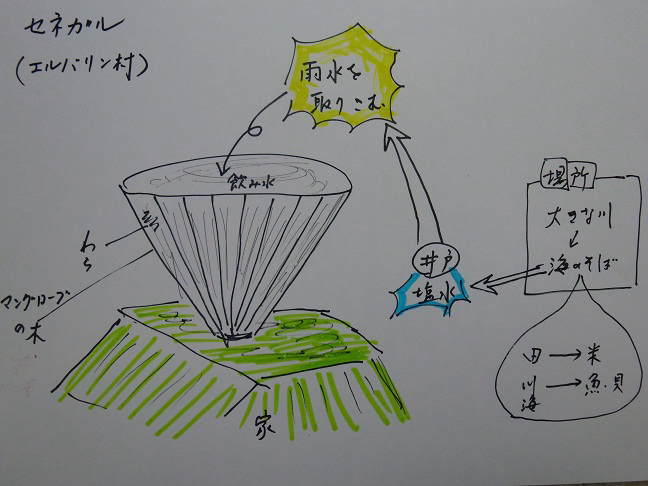 セネガル
(エルバリン村)
雨水を
取りこむ
飲み水
わら
マングローブ
の木
家
井戸
塩水
場所
大きな川
海のそば
田→米
川
海→魚・貝